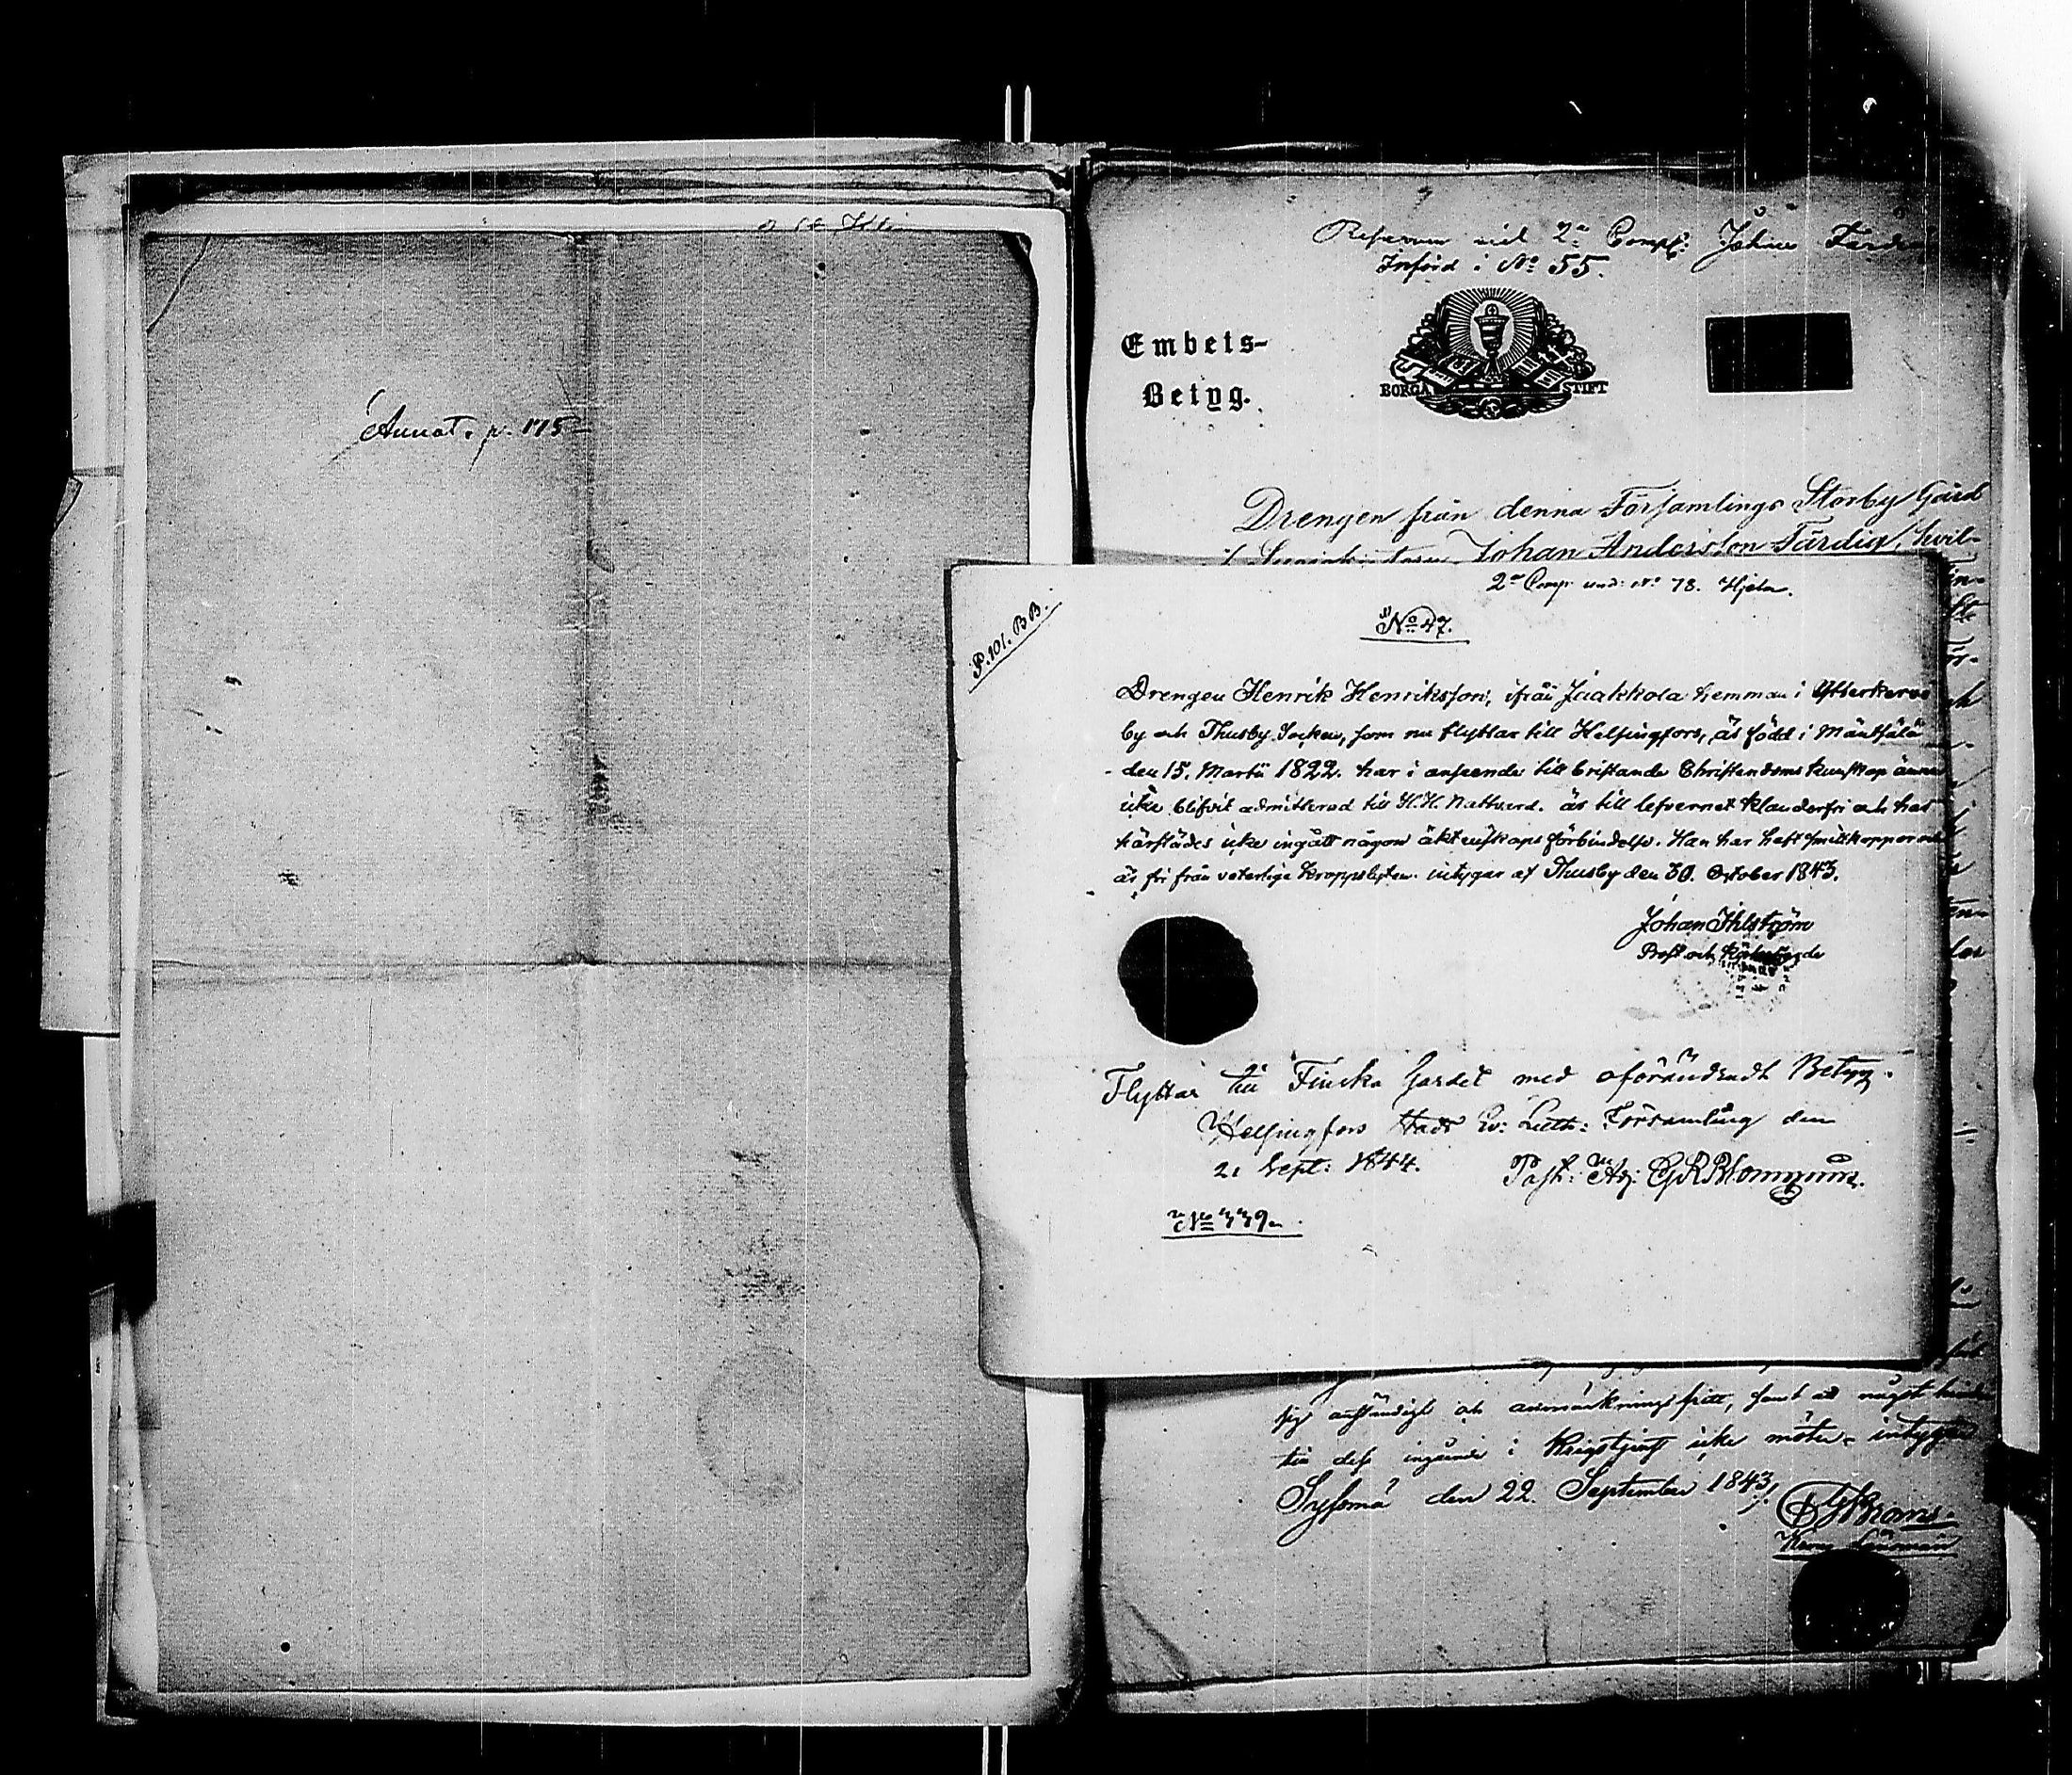 Annot. p. 175
2a Comp. Johan
Införd i No 55.
Embets-
Betyg.
BORGÅ STIFT
Drengen från denna Församlings Storby Gård
Johan Andersson Färdig, hvil-
2a Comp. und: No 78. Hjelm.
P. 101. B B.
No 47.
Drengen Henrik Henriksson, ifrån Jaakkola hemman i Ytterkervo
by och Thusby Socken, som nu flyttar till Helsingfors, är född i Mäntsälä
den 15. Martii 1822. har i anseende till bristande Christendoms kunskap ännu
icke blifvit admitterad till H.H. Nattvard. är till lefvernet klanderfri och har
härstädes icke ingått någon äktenskaps förbindelse. Han har haft smittkopporna
är fri från veterliga kroppslyten. intygar af Thusby den 30. October 1843.
Johan Ihlström
Prost och Kyrkoherde
Flyttar till Finska Gardet med oförändradt Betyg.
Helsingfors Stads Ev: Luth: Församling den
21 Sept: 1844. Past: Adj:
No 339.
sig anständigt och anmärkningsfritt, samt att något hinder
till dess ingående i Krigstjenst icke möter, intygar
Sysmä den 22. September 1843